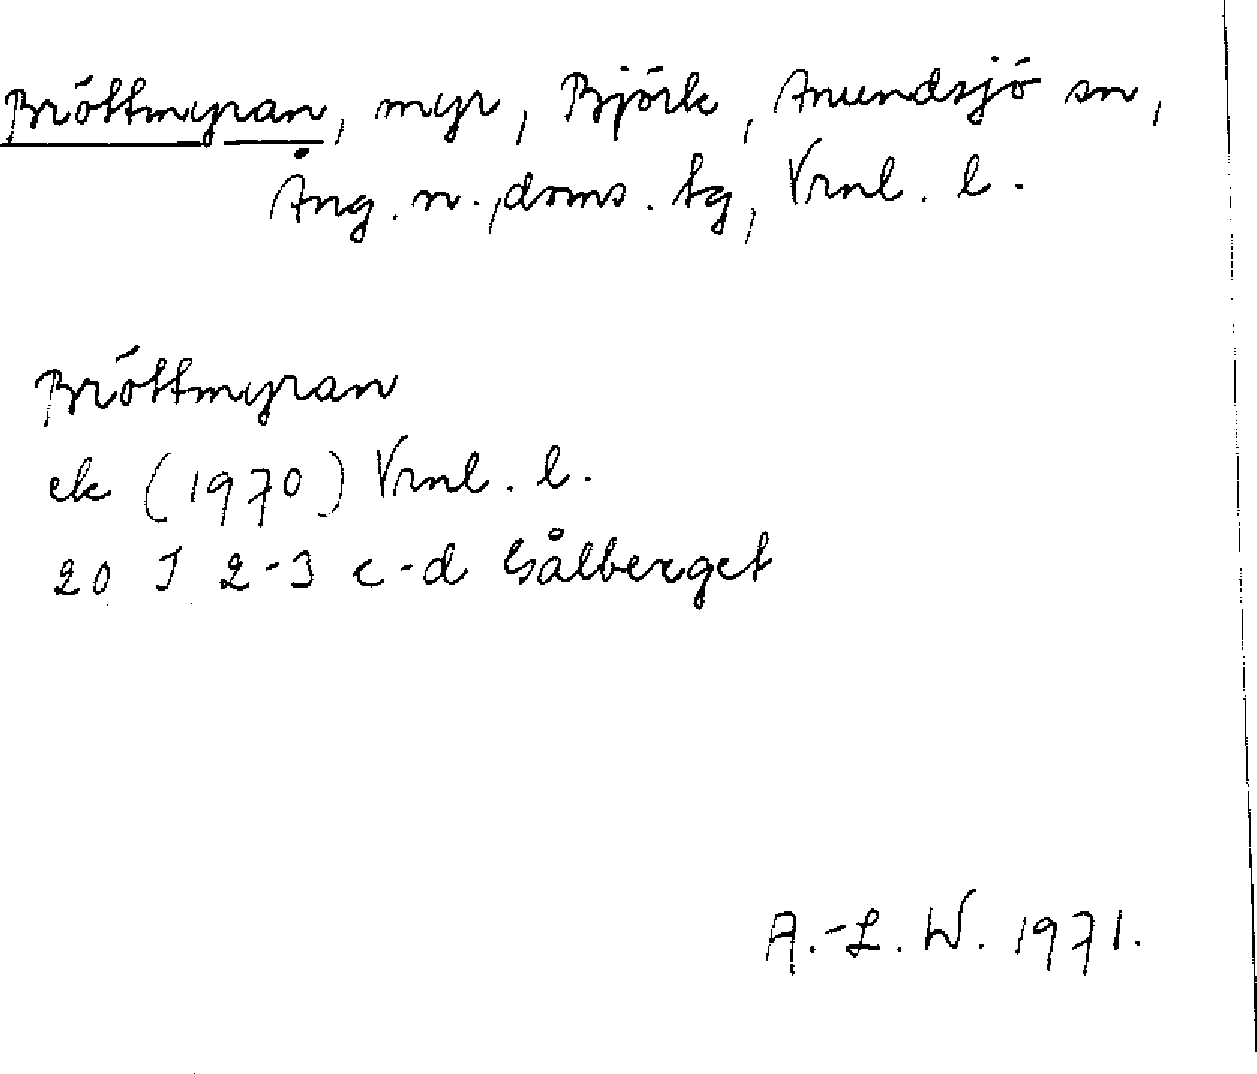 Bröttmyran, myr, Björk, Anundsjö sn,
Ång. n., doms. tg, Vrnl. l.
Bröttmyran
ek (1970) Vrnl. l.
20 J 2-3 c-d Gålberget
A.-L. W. 1971.